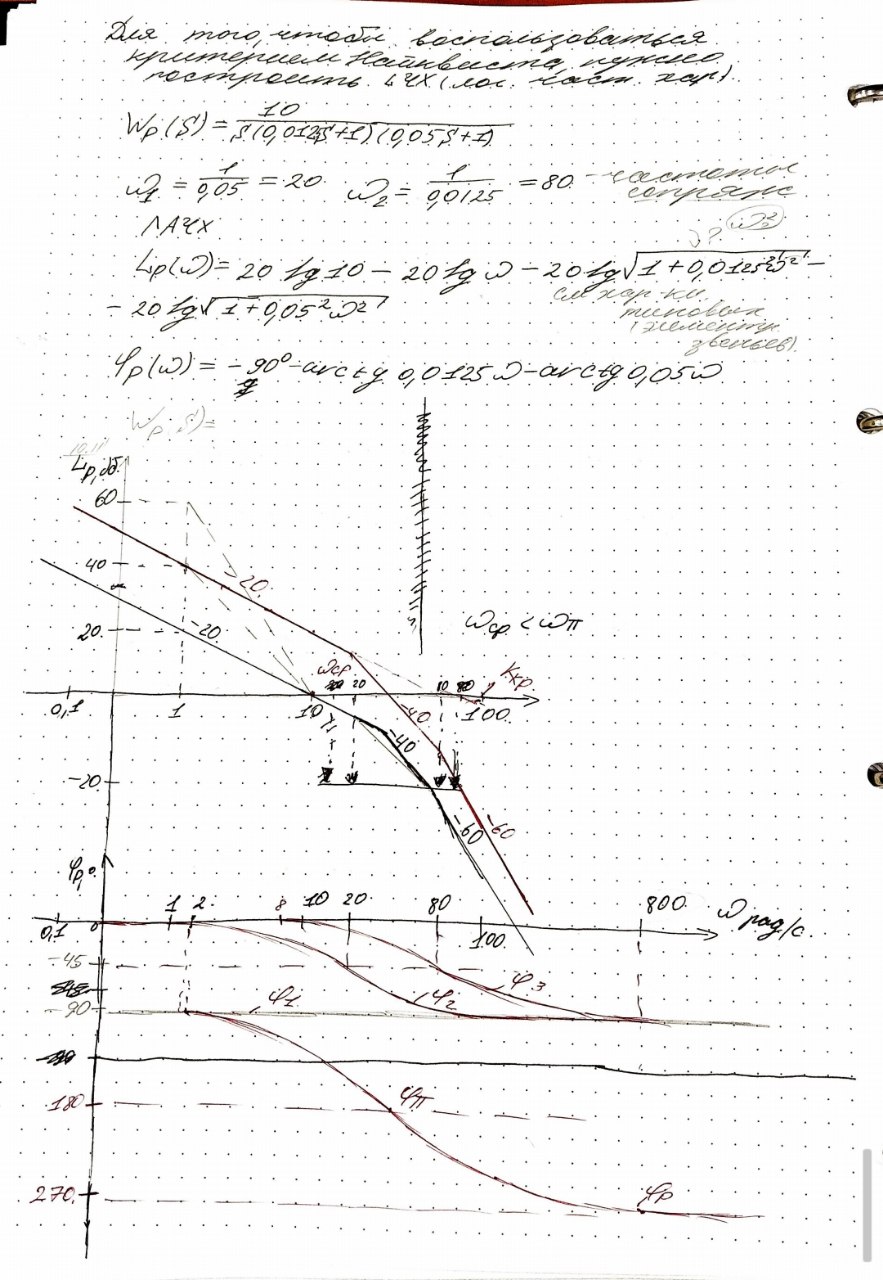 Для того, чтобы воспользоваться
критерием Найквиста нужно
построить ЛЧХ (лог. част. хар).
Wp(S) = 10 / S(0,0125S+1)(0,05S+1)
ω1 = 1/0,05 = 20 ω2 = 1/0,0125 = 80 - частоты
сопряж
ЛАЧХ
? ω²
Lp(ω) = 20 lg 10 - 20 lg ω - 20 lg √1+0,0125²ω² -
- 20 lg √1+0,05²ω²
см хар-ки
типовых
(элементр
звеньев).
φp(ω) = -90° - arctg 0,0125ω - arctg 0,05ω
Wp(S) =
Lp, дб.
60
40
20
-20
-20
ωср < ωπ
ωср
20
10
80
Kкр.
0,1 1 10 100
-40
-40
-20
-60
-60
φp,°
1 2 8 10 20 80 800 ω рад/с.
0,1 0 100
-45
-90
φ1 φ2 φ3
φπ
180
270
φp